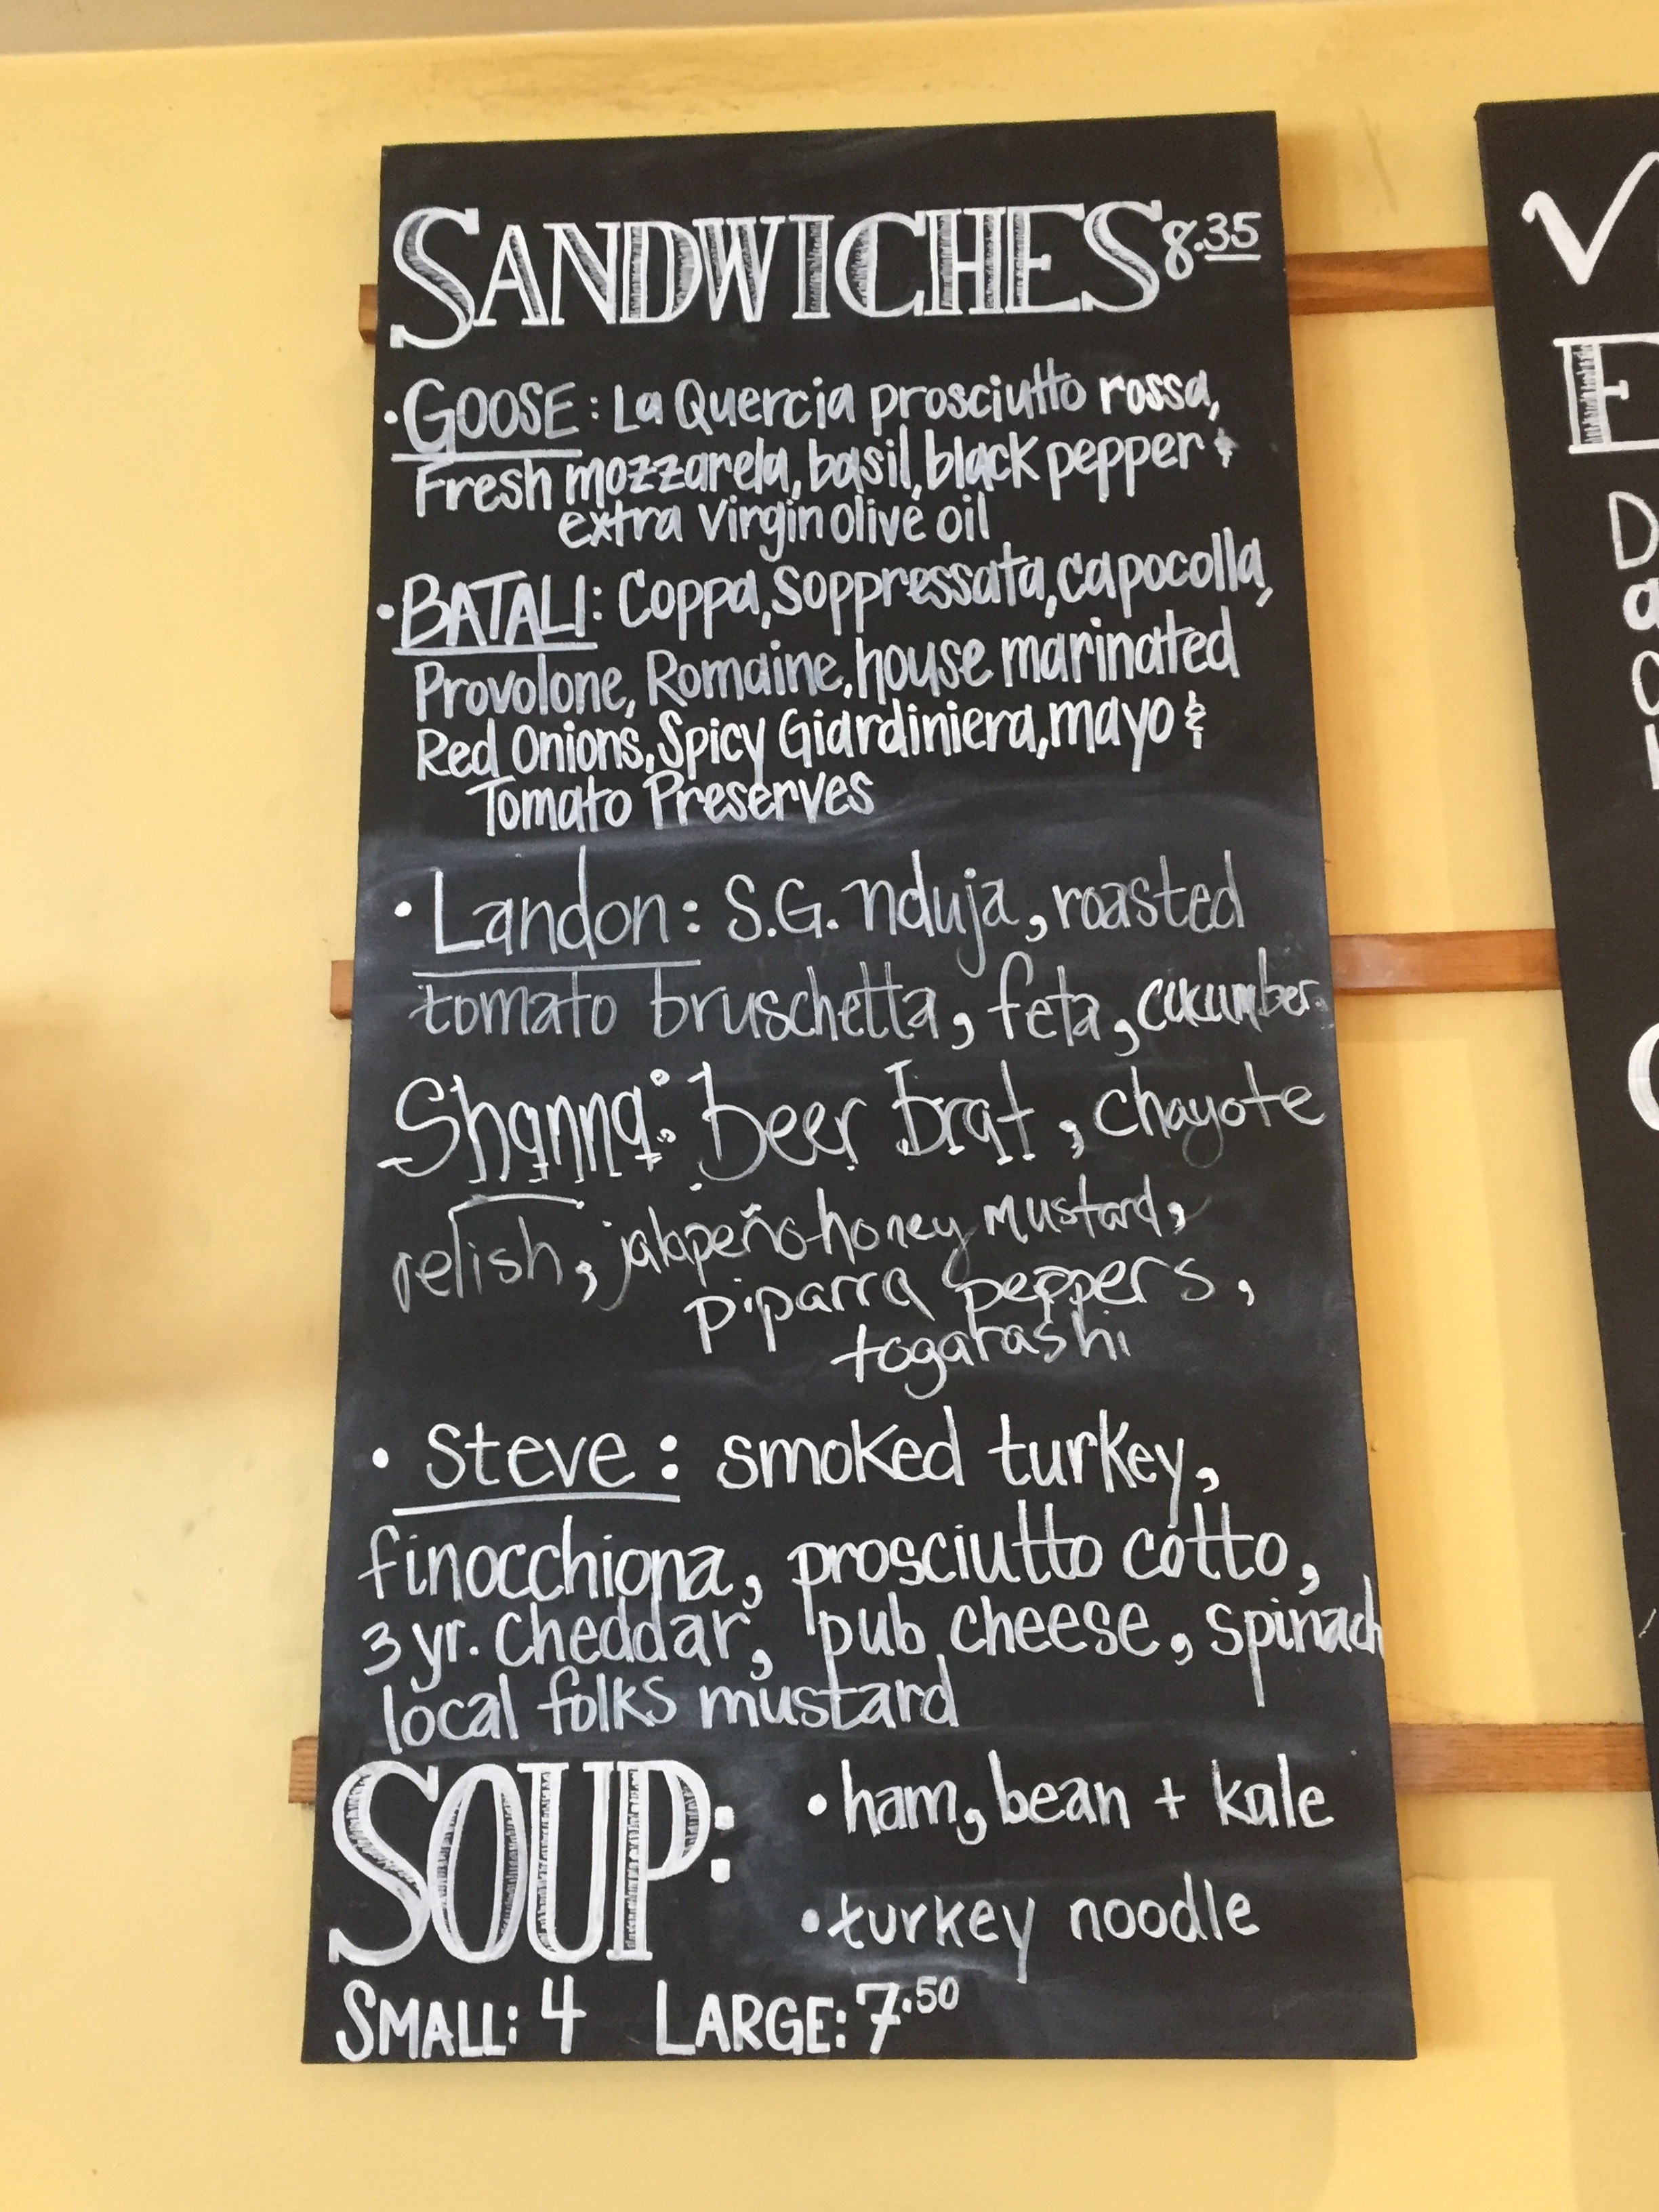 SANDWICHES 8.35
• GOOSE: La Quercia prosciutto rossa,
Fresh mozzarela, basil, black pepper &
extra virgin olive oil
• BATALI: Coppa, Soppressata, capocolla,
Provolone, Romaine, house marinated
Red Onions, Spicy Giardiniera, mayo &
Tomato Preserves
• Landon: S.G. nduja, roasted
tomato bruschetta, feta, cucumber
Shanna: beer brat, chayote
relish, jalapeño honey mustard,
piparra peppers,
togarashi
• Steve: smoked turkey,
finocchiona, prosciutto cotto,
3 yr. cheddar, pub cheese, spinach
local folks mustard
SOUP:
• ham, bean + kale
• turkey noodle
SMALL: 4 LARGE: 7.50